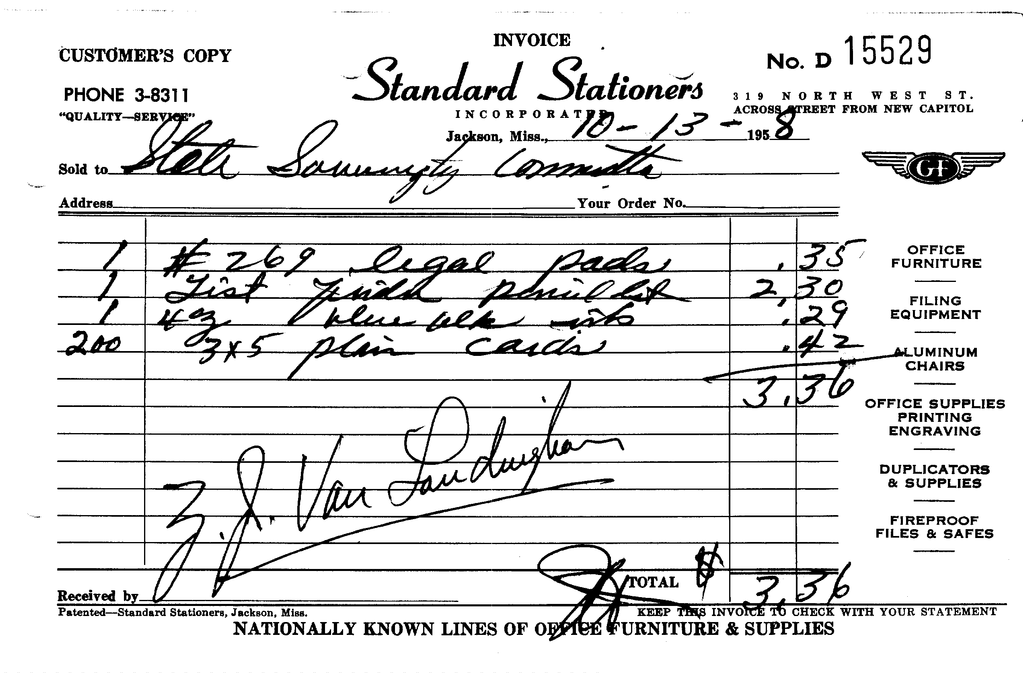 INVOICE
CUSTOMER'S COPY
No. D 15529
Standard Stationers
PHONE 3-8311
319 NORTH WEST ST.
"QUALITY—SERVICE"
INCORPORATED
ACROSS STREET FROM NEW CAPITOL
Jackson, Miss., 10-13- 1958
Sold to State Sovereignty Committee
GF
Address Your Order No.
1 #269 legal pads .35
1 pencil 2.30
1 4oz blue blk ink .29
200 3x5 plain cards .42
3.36
OFFICE
FURNITURE
FILING
EQUIPMENT
ALUMINUM
CHAIRS
OFFICE SUPPLIES
PRINTING
ENGRAVING
DUPLICATORS
& SUPPLIES
FIREPROOF
FILES & SAFES
Z. J. Van Landingham
TOTAL $ 3.36
Received by
Patented—Standard Stationers, Jackson, Miss.
KEEP THIS INVOICE TO CHECK WITH YOUR STATEMENT
NATIONALLY KNOWN LINES OF OFFICE FURNITURE & SUPPLIES